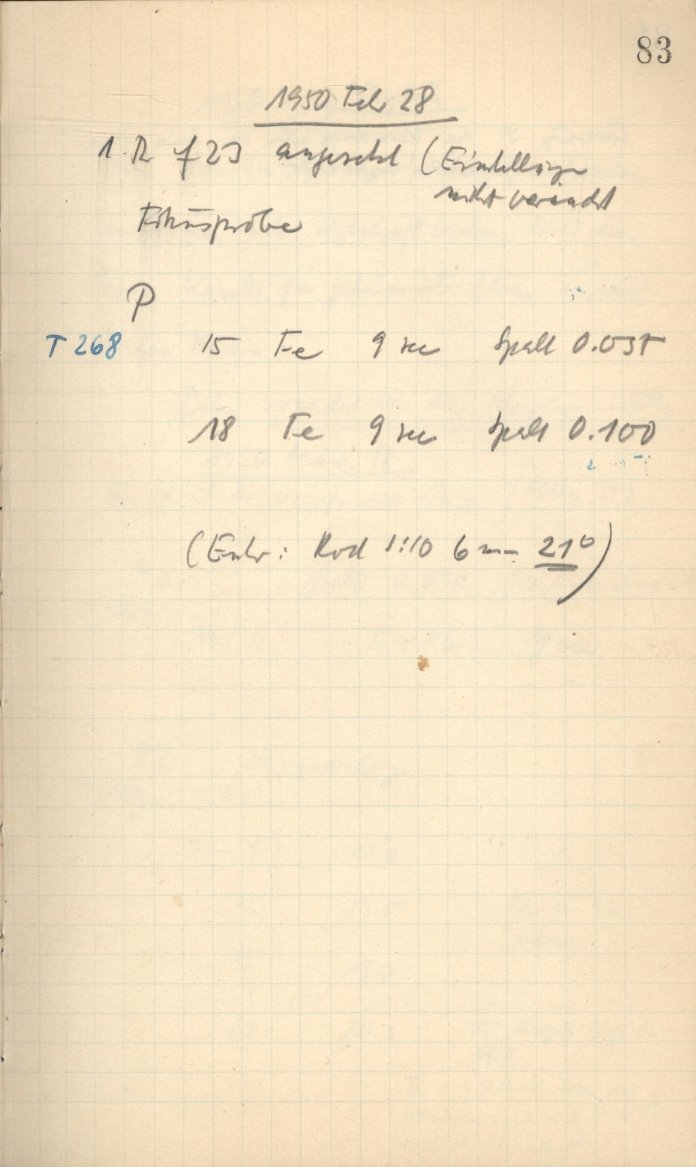 83
1950 Feb 28
1. R f 23 angesetzt (Einstellung
nicht verändert
Fokusprobe
P
T 268 15 Fe 9 sec Spalt 0.035
18 Fe 9 sec Spalt 0.100
(Entw: Rod 1:10 6 min 21°)